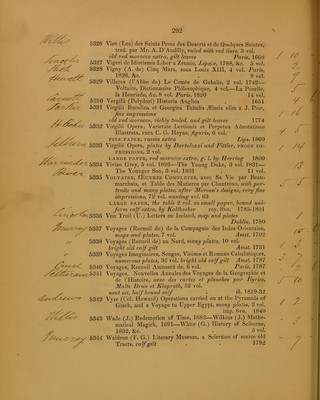 292
Willis
5326 Vies (Les) des Saints Peres des Deserts et de Quelques Saintes,
trad. par Mr. A. D'Andilly, ruled with red lines, 3 vol.
old red morocco extra, gilt leaves Paris, 1668
5327 Vigeri de Idiotismis Liber a Zeunio, Lipsiæ, 1788, &c. 5 vol.
5328 Vigny (A. de) Cinq Mars, sous Louis XIII, 4 vol. Paris,
1826, &c. 8 vol.
5329 Villares (l'Abbe de) Le Comte de Gabalis, 2 vol. 1742—
Voltaire, Dictionnaire Philosophique, 4 vol.—La Pucelle,
la Henriade, &c. 8 vol. Paris, 1820 14 vol.
5330 Vergilii (Polydori) Historia Anglica 1651
5331 Virgilii Bucolica et Georgica Tabulis Æneis olim a J. Pine,
fine impressions
old red morocco, richly tooled, and gilt leaves 1774
5332 Virgilii Opera, Varietate Lectionis et Perpetua Adnotatione
Illustrata, cura C. G. Heyne, figuris, 6 vol.
FINE PAPER, russia extra Lips. 1800
5333 Virgilii Opera, plates by Bartolozzi and Fittler, PROOF IMPRESSIONS, 2 vol.
LARGE PAPER, red morocco extra, g. l. by Herring 1800
5334 Vivian Grey, 5 vol. 1826—The Young Duke, 3 vol. 1831—
The Younger Son, 3 vol. 1831 11 vol.
5335 VOLTAIRE, ŒUVRES COMPLETES, avec Sa Vie par Beaumarchais, et Table des Matieres par Chantreau, with portraits and many plates, after Moreau's designs, very fine
impressions, 72 vol. wanting vol. 63
LARGE PAPER, the table 2 vol. on small paper, bound uniform calf extra, by Kalthoeber roy. 8vo. 1785-1801
5336 Von Troil (U.) Letters on Iceland, map and plates
Dublin, 1780
5337 Voyages (Recueil de) de la Compagnie des Indes Orientales,
maps and plates, 7 vol. Amst. 1702
5338 Voyages (Recueil de) au Nord, many plates, 10 vol.
bright old calf gilt Amst. 1731
5339 Voyages Imaginaires, Songes, Visions et Romans Cabalistiques,
numerous plates, 36 vol. bright old calf gilt Amst. 1787
5340 Voyages, Recueil Amusant de, 6 vol. Paris, 1787
5341 Voyages, Nouvelles Annales des Voyages de la Geographie et
de l'Histoire, avec des cartes et planches par Eyriès,
Malte Brun et Klaproth, 52 vol.
neat set, half bound calf ib. 1819-32
5342 Vyse (Col. Howard) Operations carried on at the Pyramids of
Gizeh, and a Voyage to Upper Egypt, many plates, 3 vol.
imp. 8vo. 1840
5343 Wade (J.) Redemption of Time, 1683—Wilkins (J.) Mathematical Magick, 1691—White (G.) History of Selborne,
1832, &c. 5 vol.
5344 Waldron (F. G.) Literary Museum, a Selection of scarce old
Tracts, calf gilt 1792